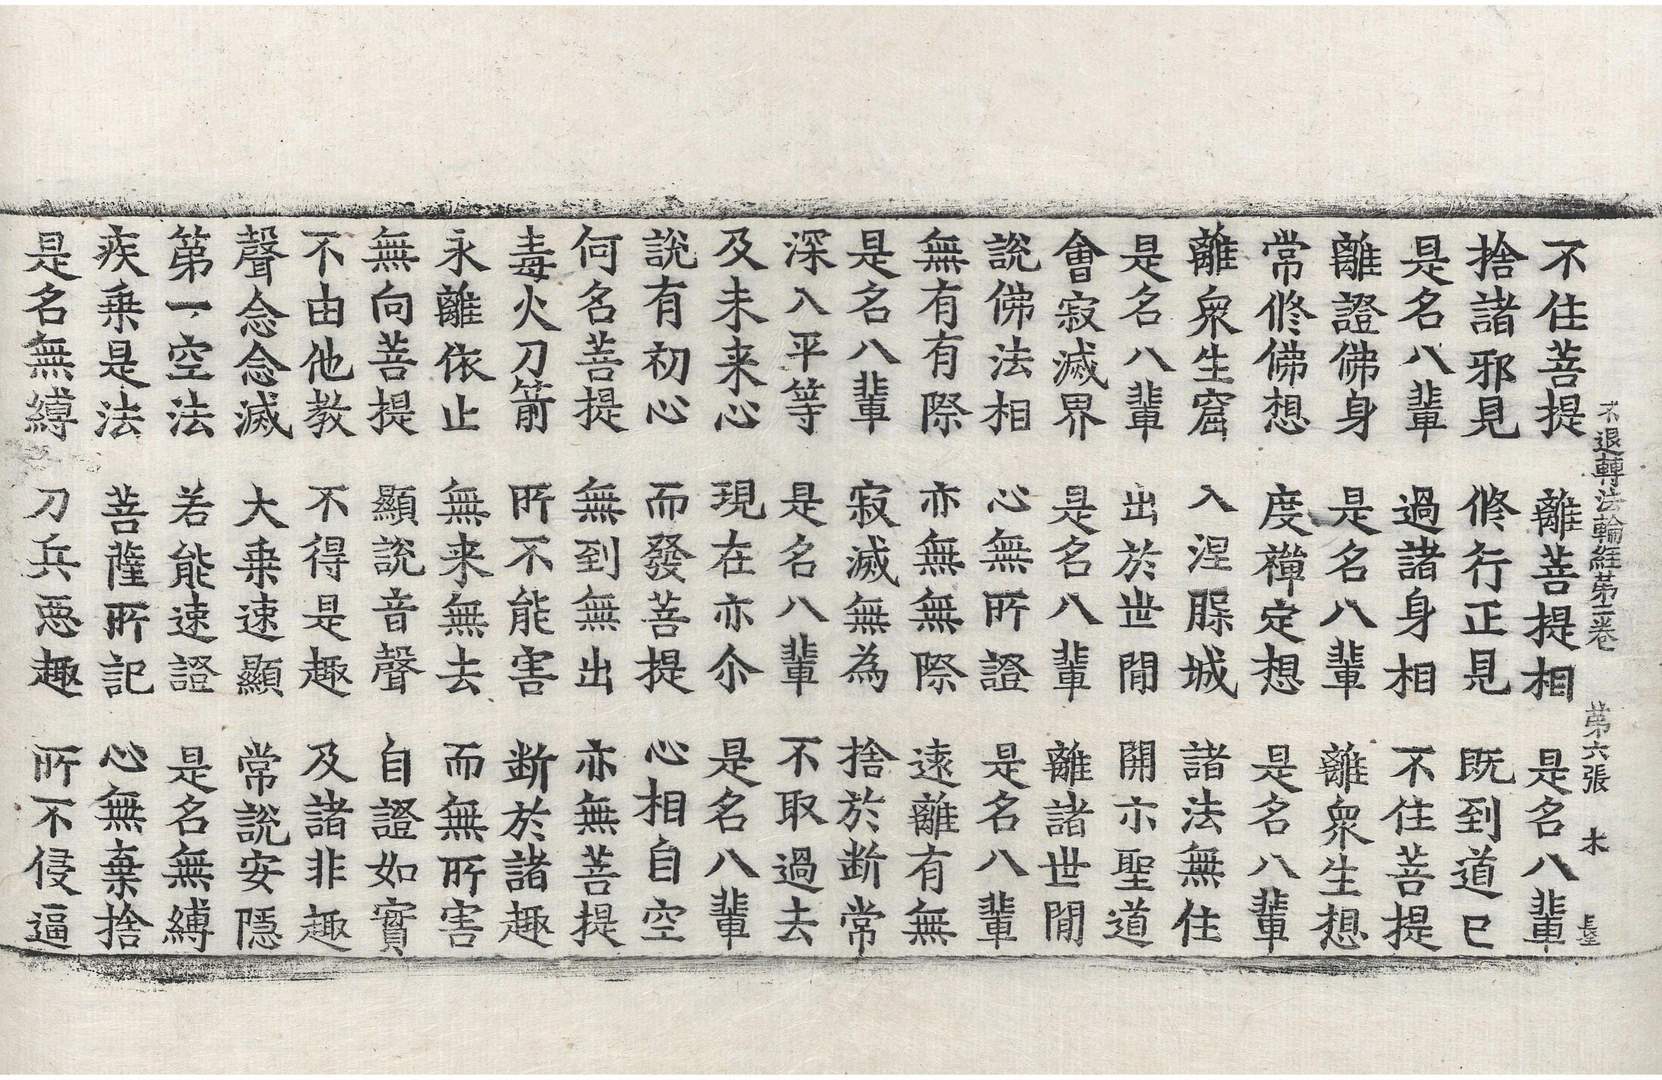 不退轉法輪經第二卷　第六張　木
不住菩提　離菩提相　是名八輩
捨諸邪見　修行正見　既到道已
是名八輩　過諸身相　不住菩提
離證佛身　是名八輩　離衆生想
常修佛想　度禪定想　是名八輩
離衆生窟　入涅槃城　諸法無住
是名八輩　出於世間　開示聖道
會寂滅界　是名八輩　離諸世間
說佛法相　心無所證　是名八輩
無有有際　亦無無際　遠離有無
是名八輩　寂滅無為　捨於断常
深入平等　是名八輩　不取過去
及未来心　現在亦尒　是名八輩
說有初心　而發菩提　心相自空
何名菩提　無到無出　亦無菩提
毒火刀箭　所不能害　断於諸趣
永離依止　無来無去　而無所害
無向菩提　顯說音聲　自證如實
不由他教　不得是趣　及諸非趣
聲念念滅　大乗速顯　常說安隱
第一空法　若能速證　是名無縛
疾乗是法　菩薩所記　心無棄捨
是名無縛　刀兵惡趣　所不侵逼